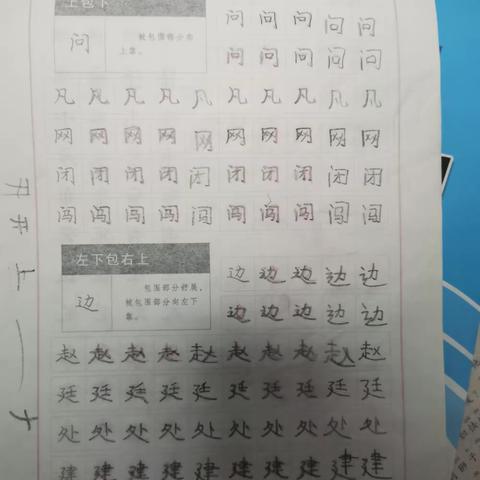 上包下
问 问 问 问 问
问
被包围部分
上靠。
问 问 问 问 问
凡 凡 凡 凡 凡 凡 凡 凡 凡 凡
网 网 网 网 网 网 网 网 网 网
闭 闭 闭 闭 闭 闭 闭 闭 闭 闭
闯 闯 闯 闯 闯 闯 闯 闯 闯 闯
左下包右上
边
包围部分舒展,
被包围部分向左下
靠。
边 边 边 边 边
边 边 边 边 边
赵 赵 赵 赵 赵 赵 赵 赵 赵 赵
廷 廷 廷 廷 廷 廷 廷 廷 廷 廷
处 处 处 处 处 处 处 处 处 处
建 建 建 建 建 建 建 建 建 建